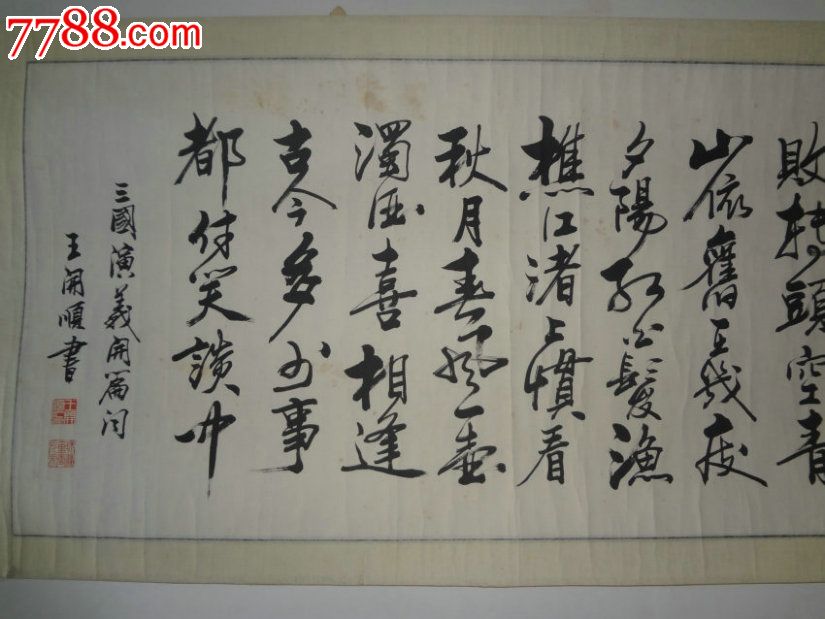 7788.com
敗轉頭空青
山依舊在幾度
夕陽紅白髮漁
樵江渚上慣看
秋月春風一壺
濁酒喜相逢
古今多少事
都付笑談中
三國演義開篇词
王開順書